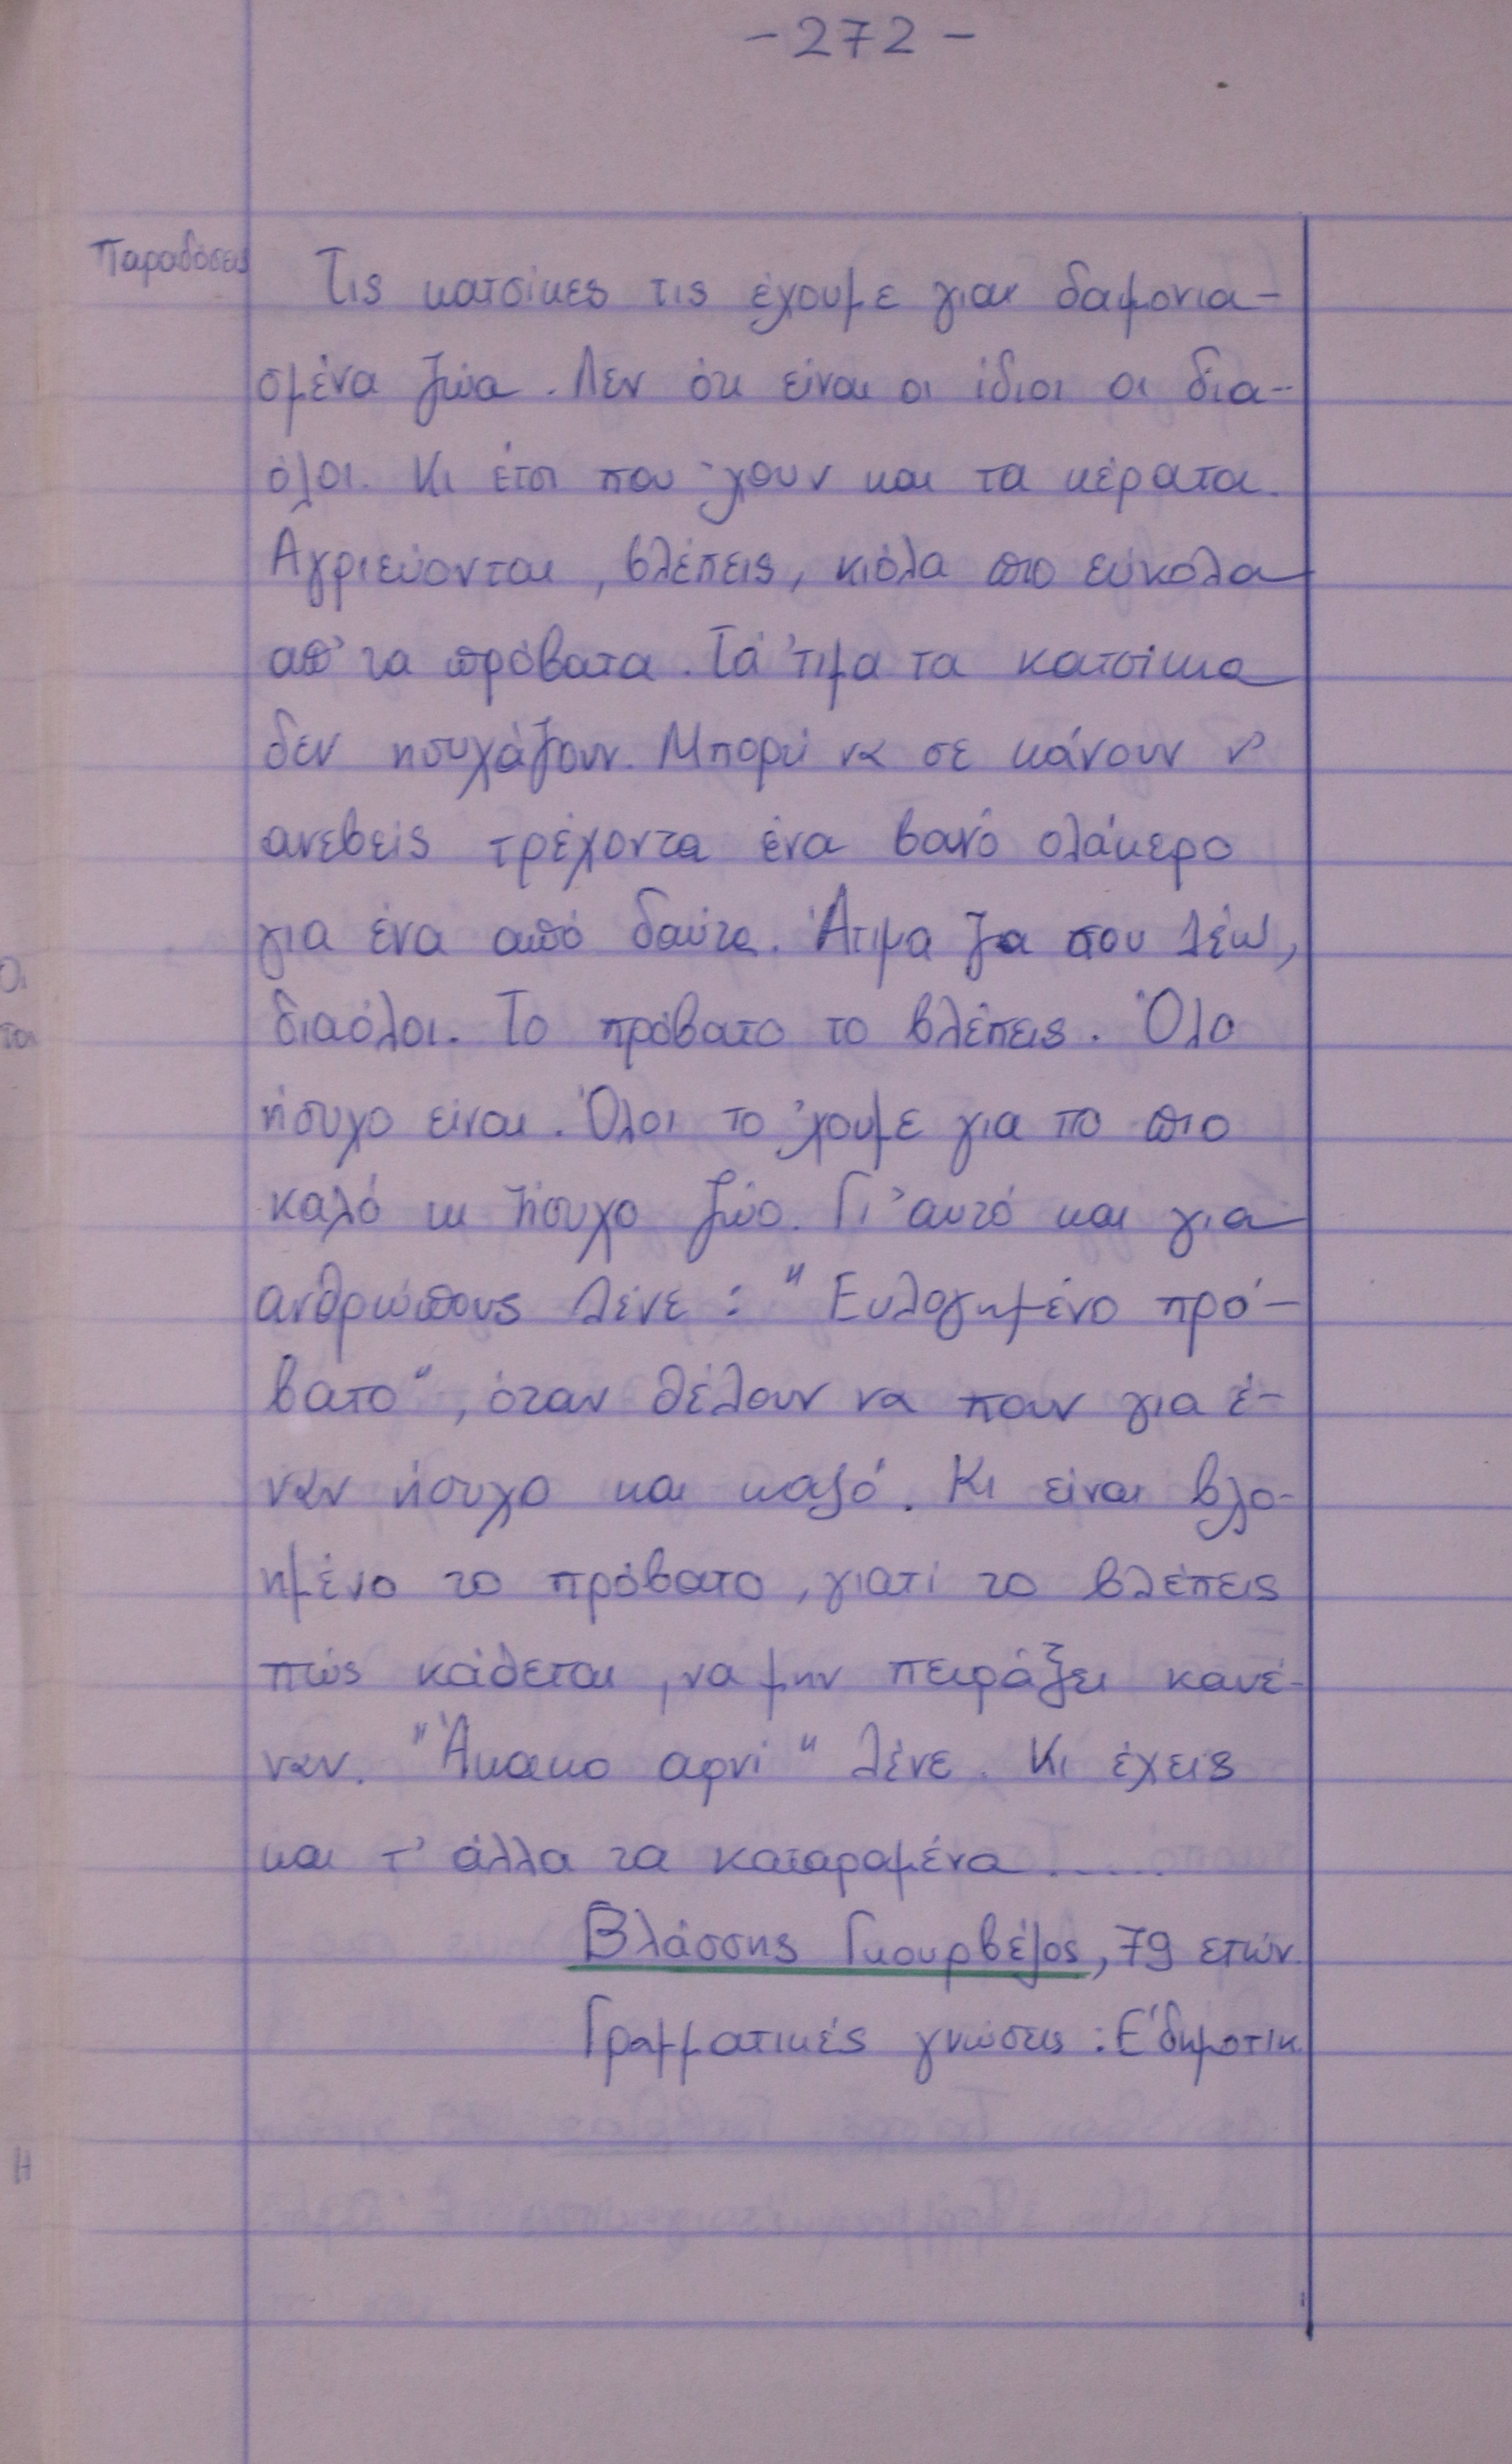 -272-
Παραδόσεις
Τις κατσίκες τις έχουμε για δαιμονια-
σμένα ζώα. Λεν ότι είναι οι ίδιοι οι δια-
όλοι. Κι έτσι που 'χουν και τα κέρατα.
Αγριεύονται, βλέπεις, κιόλα πιο εύκολα
απ' τα πρόβατα. Τα 'τιμα τα κατσίκια
δεν ησυχάζουν. Μπορεί να σε κάνουν ν'
ανεβείς τρέχοντα ένα βουνό ολάκερο
για ένα από δαύτα. Άτιμα ζα σου λέω,
διαόλοι. Το πρόβατο το βλέπεις. Όλο
ήσυχο είναι. Όλοι το 'χουμε για το πιο
καλό κι ήσυχο ζώο. Γι' αυτό και για
ανθρώπους λένε: "Ευλογημένο πρό-
βατο", όταν θέλουν να πουν για έ-
ναν ήσυχο και καλό. Κι είναι βλο-
ημένο το πρόβατο, γιατί το βλέπεις
πώς κάθεται, να μην πειράξει κανέ-
ναν. "Άκακο αρνί" λένε. Κι έχεις
και τ' άλλα τα καταραμένα......
Βλάσσης Γκουρβέλος, 79 ετών.
Γραμματικές γνώσεις: Ε' δημοτικ.
Οι
τα
Η